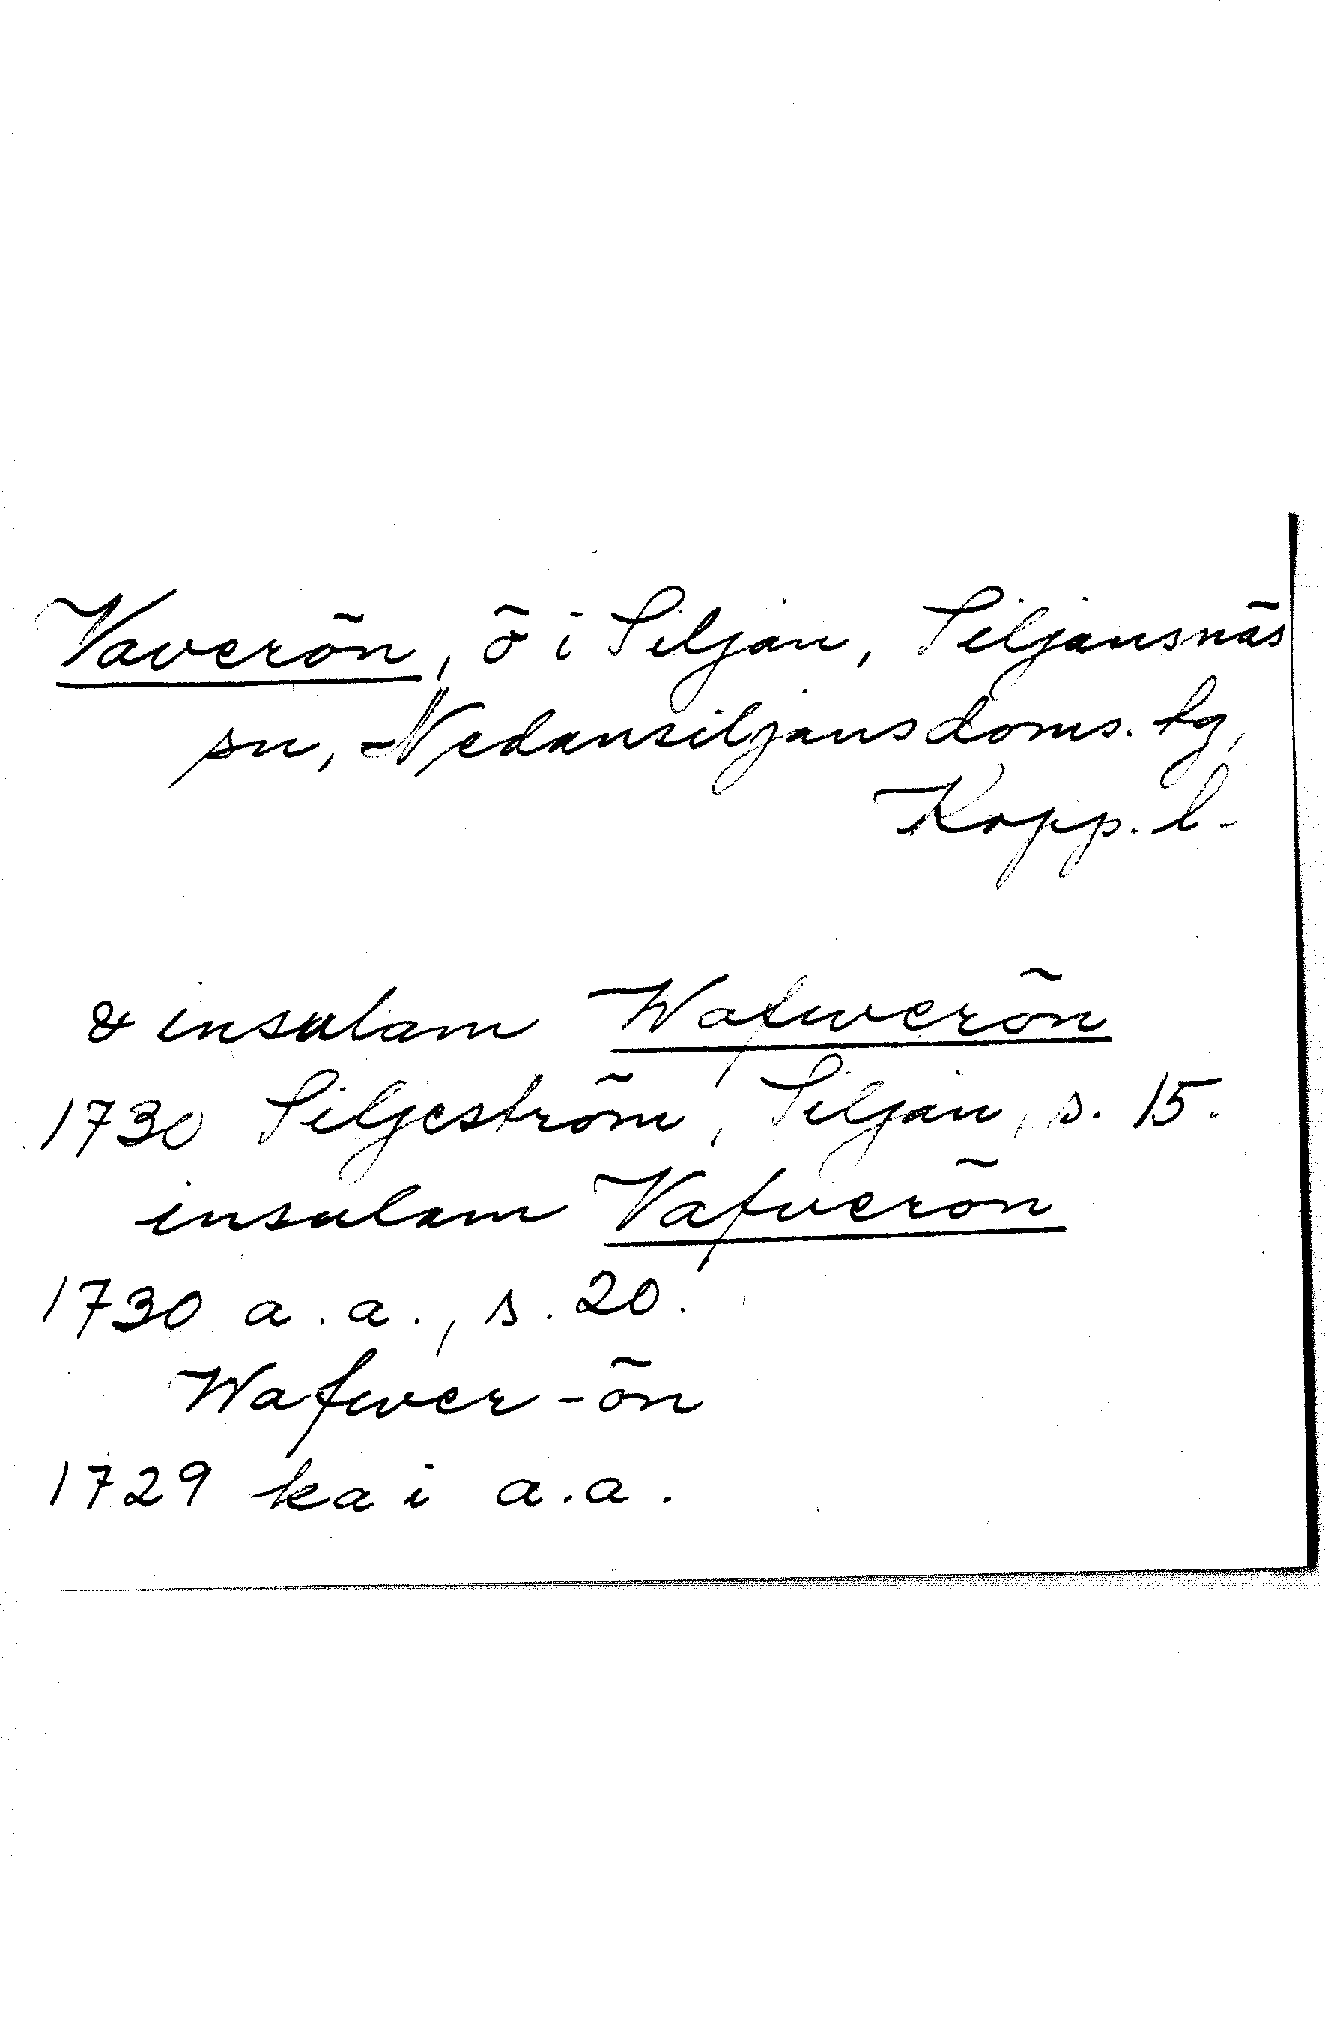 Vaverön, ö i Siljan, Siljansnäs
sn, Nedansiljans doms. tg,
Kopp. l.
& insulam Wafwerön
1730 Siljeström, Siljan, s. 15.
insulam Vafverön
1730 a. a., s. 20.
Wafwer-ön
1729 ka i a.a.